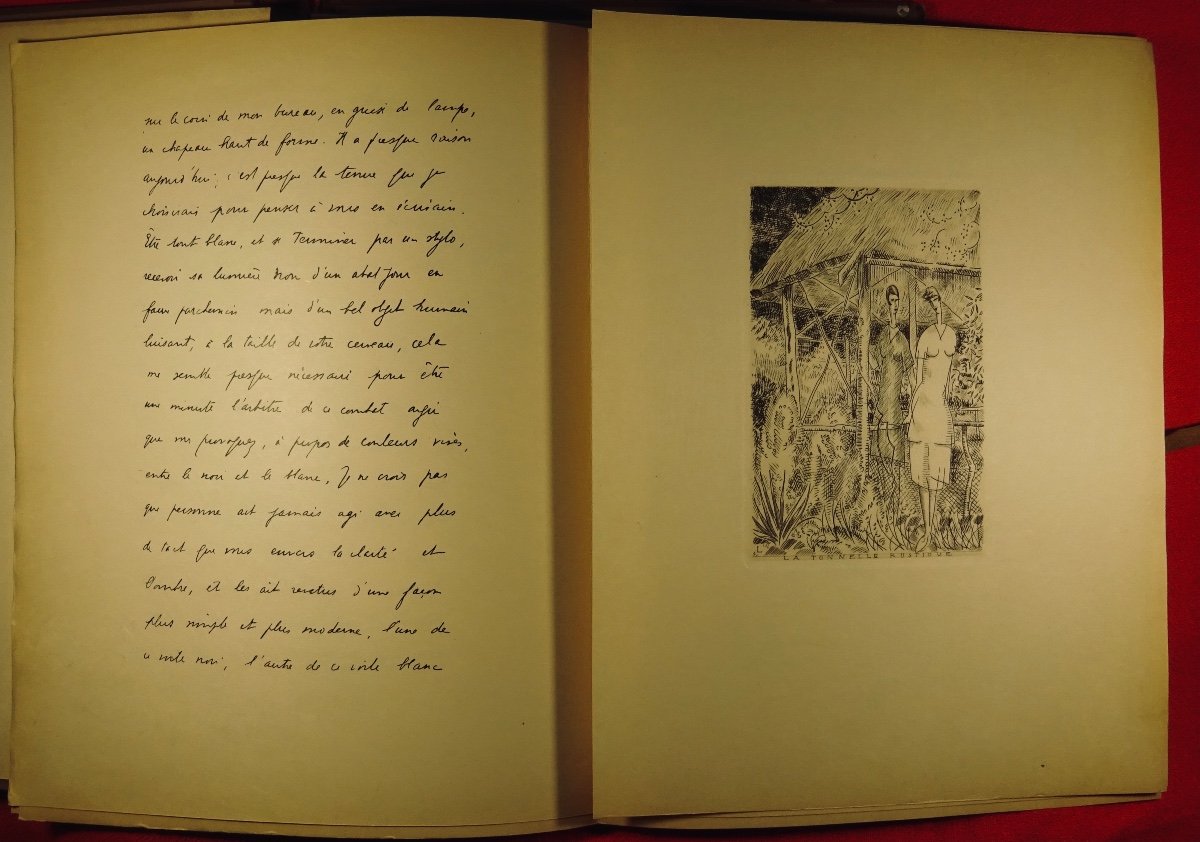 sur le coin de mon bureau, en guise de lampe,
un chapeau haut de forme. Il a presque raison
aujourd'hui; c'est presque la tenue que je
choisirais pour penser à vous en écrivain.
Être tout blanc, et se terminer par un stylo,
recevoir sa lumière non d'un abat jour en
faux parchemin mais d'un bel objet humain
luisant, à la taille de votre cerveau, cela
me semble presque nécessaire pour être
une minute l'arbitre de ce combat
que vous provoquez, à propos de couleurs vives,
entre le noir et le blanc. Je ne crois pas
que personne ait jamais agi avec plus
de tact que vous envers la clarté et
l'ombre, et les ait revêtus d'une façon
plus simple et plus moderne, l'une de
ce voile noir, l'autre de ce voile blanc
LA TONNELLE RUSTIQUE